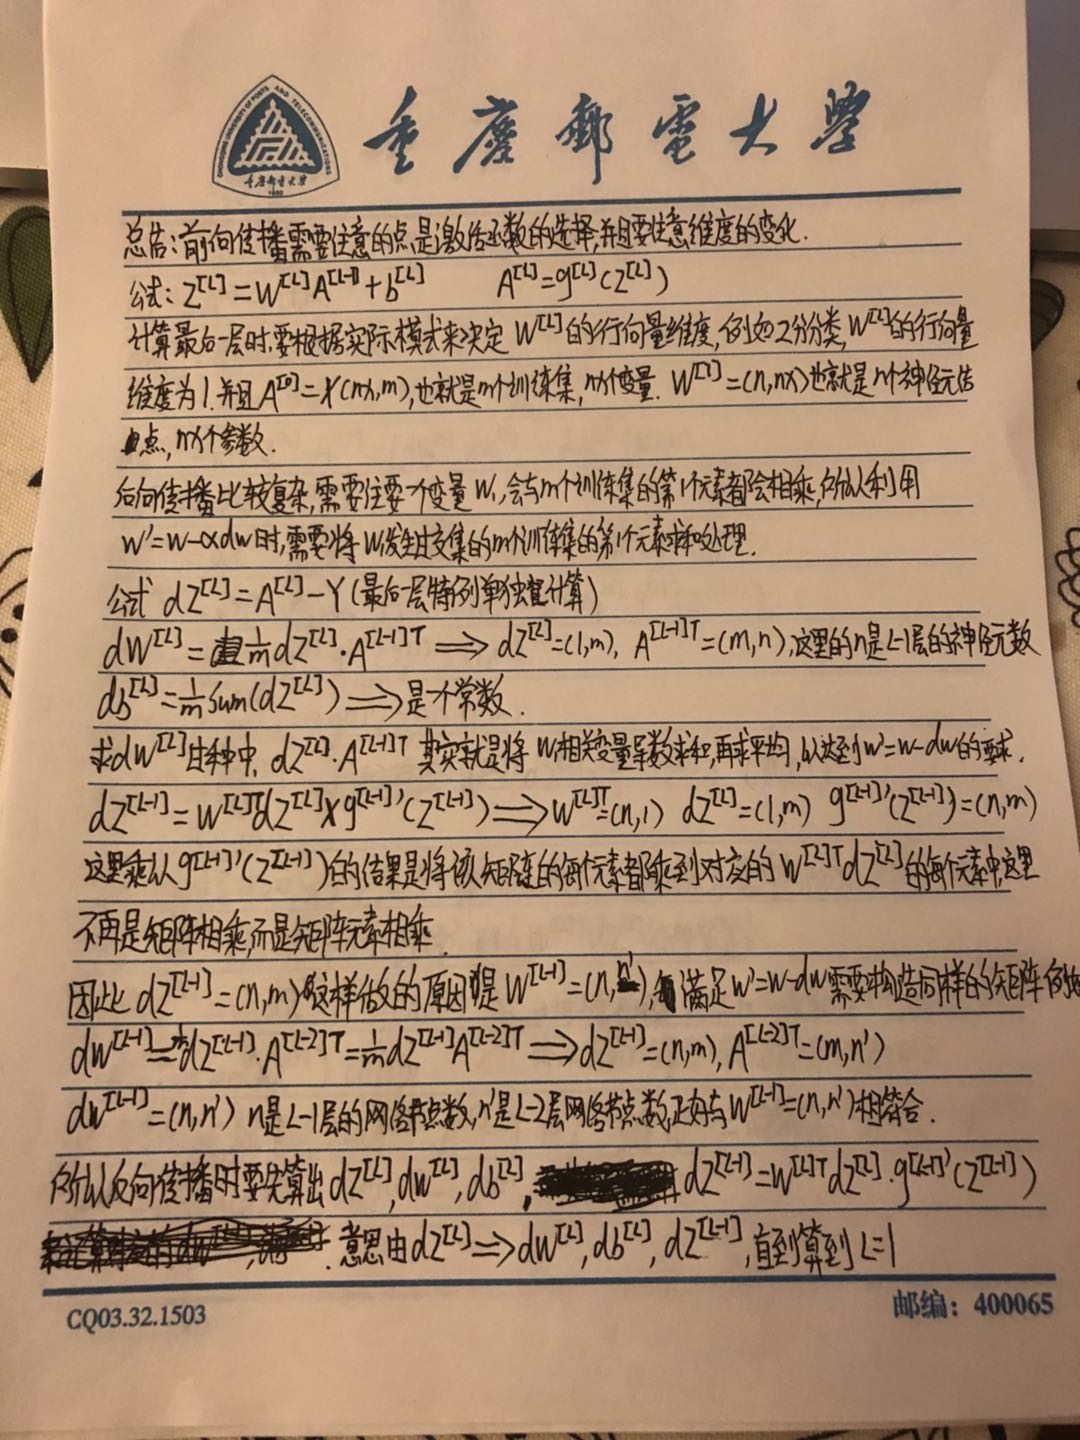 CHONGQING UNIVERSITY OF POSTS AND TELECOMMUNICATIONS
重庆邮电大学
1950
重慶郵電大學
总结:前向传播需要注意的点是激活函数的选择,并且要注意维度的变化.
公式: Z^[L]=W^[L]A^[L-1]+b^[L] A^[L]=g^[L](Z^[L])
计算最后一层时,要根据实际模式来决定 W^[L]的行向量维度,例如2分分类,W^[L]的行向量
维度为1.并且A^[0]=X(nx,m),也就是m个训练集,nx个变量. W^[1]=(n,nx)也就是n个神经元结
点,nx个参数.
后向传播比较复杂,需要注要一个变量W₁,会与m个训练集的第1个元素都会相乘,所以利用
w'=w-αdw时,需要将W发生过交集的m个训练集的第1个元素求和处理.
公式 dZ^[L]=A^[L]-Y(最后一层特例单独计算)
dW^[L]=1/m dZ^[L]·A^[L-1]T ⟹ dZ^[L]=(1,m), A^[L-1]T=(m,n),这里的n是L-1层的神经元数
db^[L]=1/m sum(dZ^[L])⟹是一个常数.
求dW^[L]过程中, dZ^[L]·A^[L-1]T 其实就是将 W相关变量导数求和,再求平均,以达到w'=w-dw的要求.
dZ^[L-1]=W^[L]TdZ^[L]×g^[L-1]'(Z^[L-1])⟹W^[L]T=(n,1) dZ^[L]=(1,m) g^[L-1]'(Z^[L-1])=(n,m)
这里乘以g^[L-1]'(Z^[L-1])的结果是将该矩阵的每个元素都乘到对应的W^[L]TdZ^[L]的每个元素中,这里
不再是矩阵相乘,而是矩阵元素相乘.
因此 dZ^[L-1]=(n,m)这样做的原因是W^[L-1]=(n,n'),满足w'=w-dw需要构造同样的矩阵,例如
dw^[L-1]=dZ^[L-1]·A^[L-2]T=1/m dZ^[L-1]A^[L-2]T⟹dZ^[L-1]=(n,m),A^[L-2]T=(m,n')
dw^[L-1]=(n,n') n是L-1层的网络节点数,n'是L-2层网络节点数,正好与W^[L-1]=(n,n')相符合.
所以反向传播时要先算出dZ^[L],dw^[L],db^[L], dZ^[L-1]=W^[L]TdZ^[L]·g^[L-1]'(Z^[L-1])
意思由dZ^[L]⟹dW^[L],db^[L],dZ^[L-1],直到算到L=1
CQ03.32.1503
邮编：400065